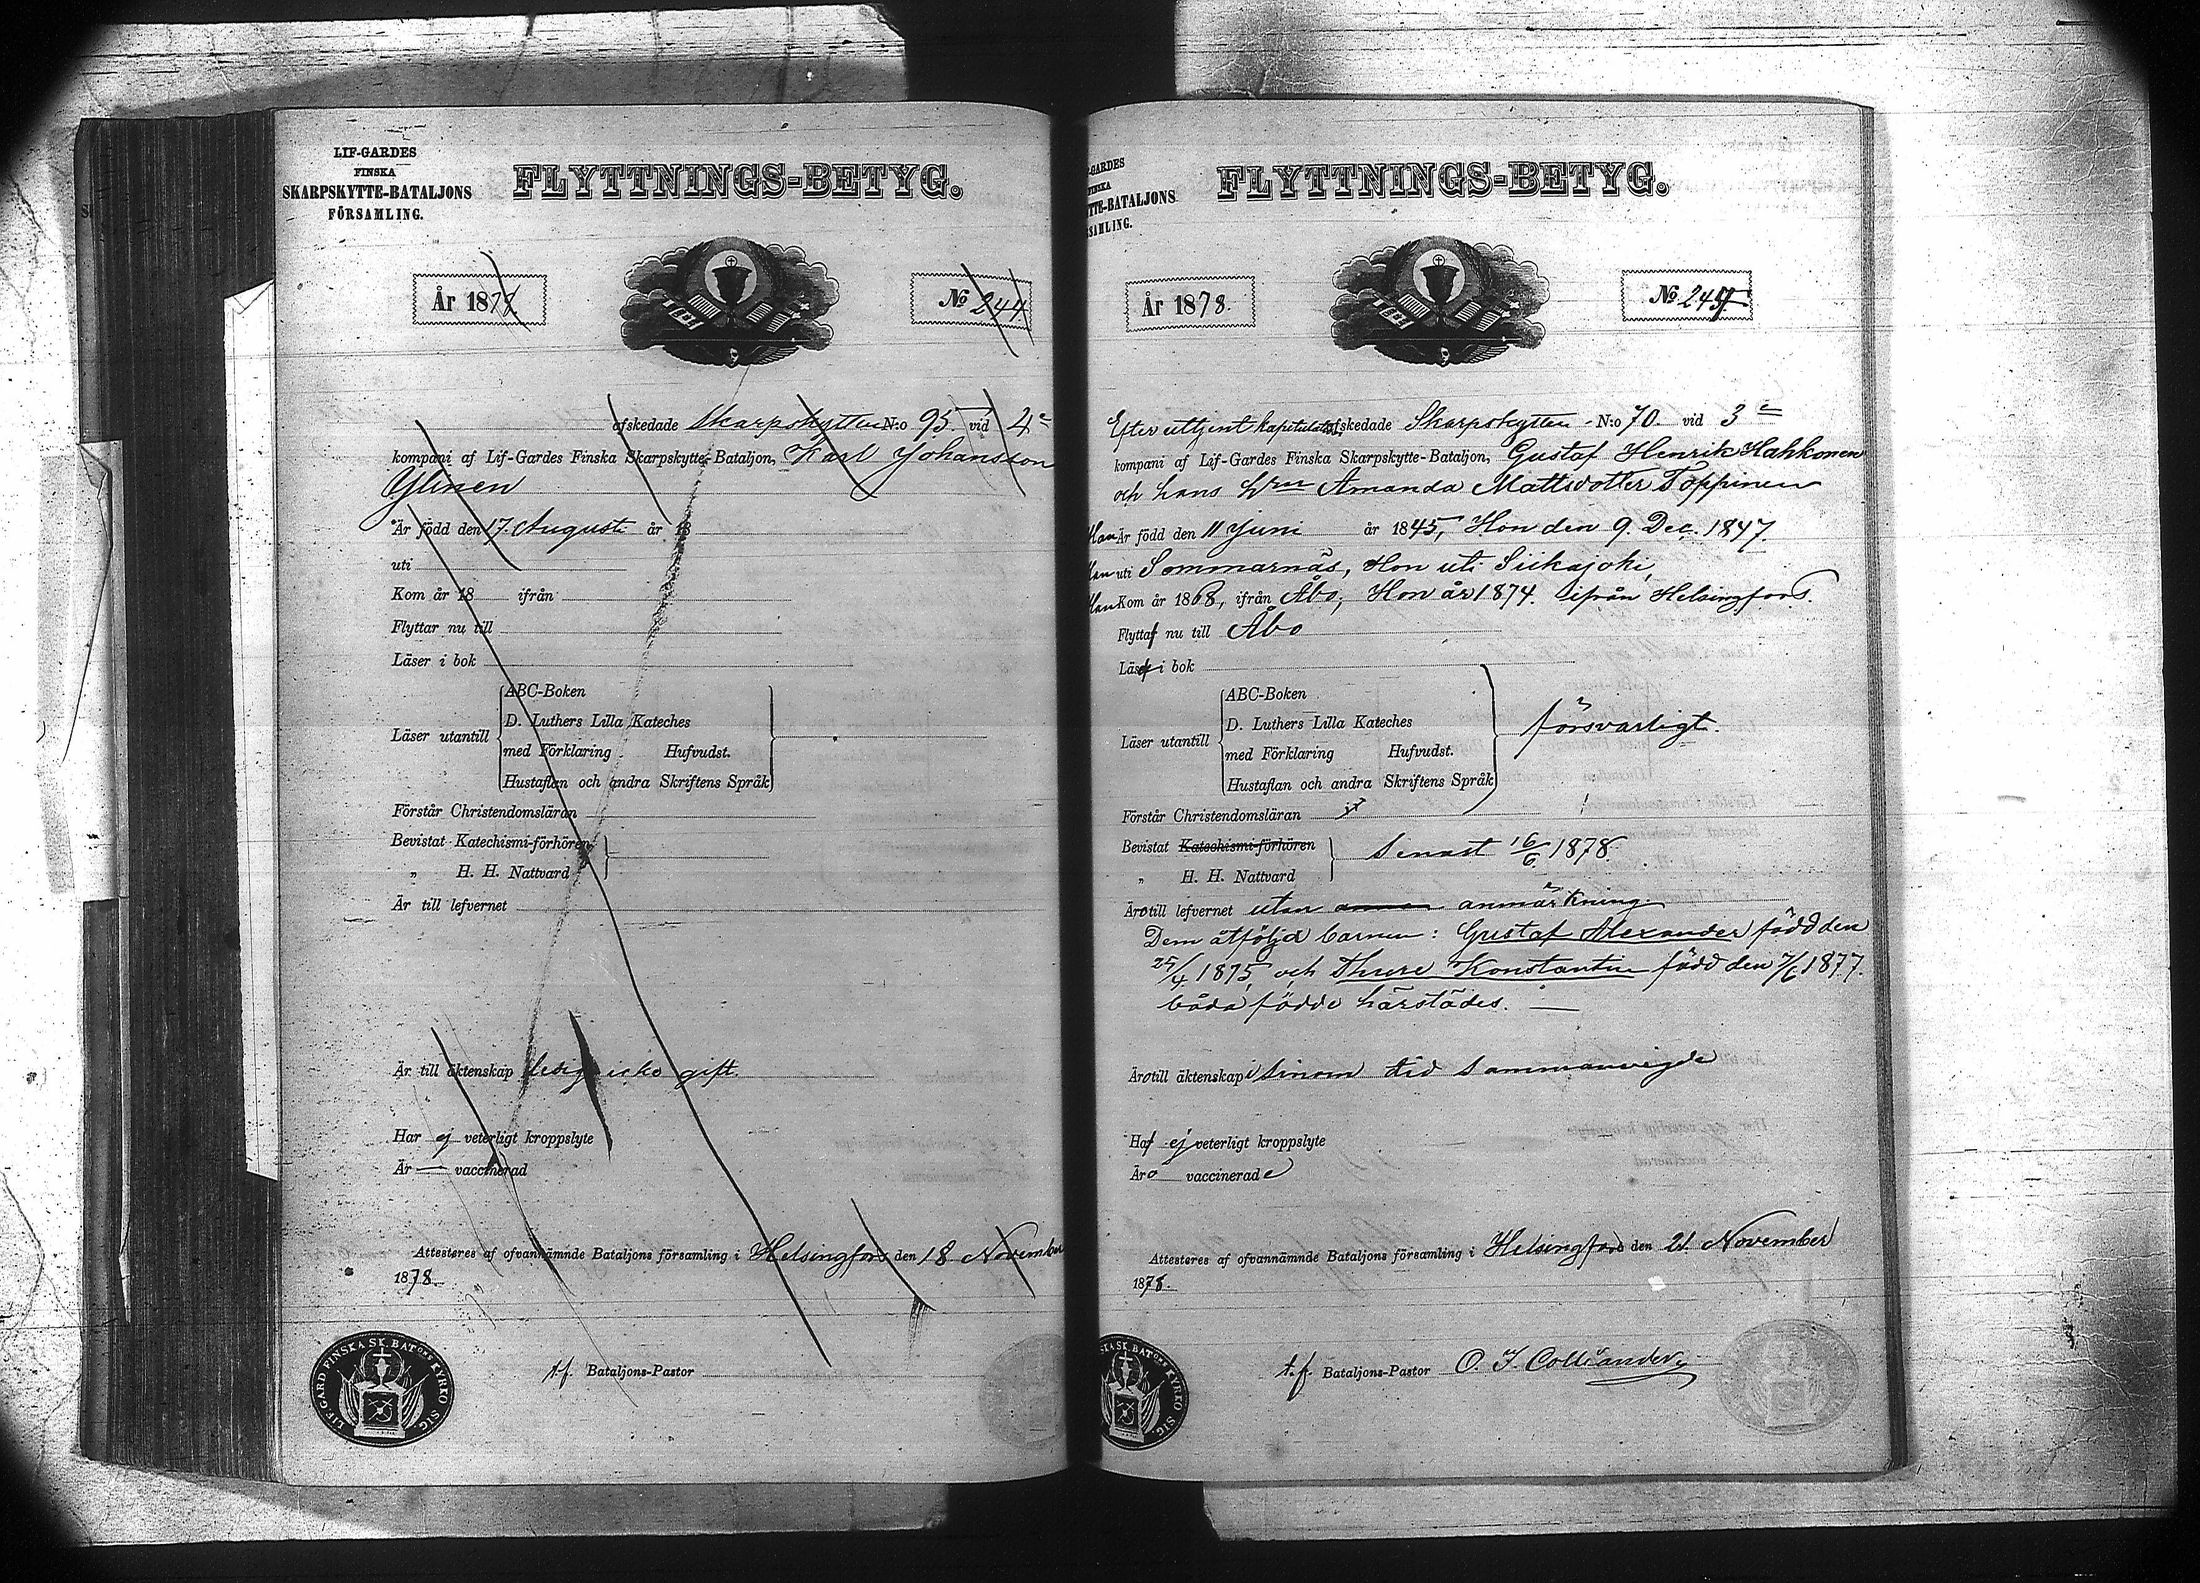 LIF-GARDES
FINSKA
SKARPSKYTTE-BATALJONS
FÖRSAMLING.
FLYTTNINGS-BETYG.
År 187
No 244.
afskedade Skarpskytten No 95. vid 4e
kompani af Lif-Gardes Finska Skarpskytte-Bataljon, Karl Johansson
Ylinen
Är född den 17. Augusti år 18
uti
Kom år 18 ifrån
Flyttar nu till
Läser i bok
ABC-Boken
D. Luthers Lilla Kateches
Läser utantill
med Förklaring Hufvudst.
Hustaflan och andra Skriftens Språk
Förstår Christendomsläran
Bevistat Katechismi-förhören
„ H. H. Nattvard
Är till lefvernet
Är till äktenskap ledig icke gift
Har ej veterligt kroppslyte
Är — vaccinerad
Attesteras af ofvannämnde Bataljons församling i Helsingfors den 18 November
1878.
LIF. GARD FINSKA SK. BATONS KYRKO SIG.
t.f. Bataljons-Pastor
-GARDES
FINSKA
TTE-BATALJONS
SAMLING.
FLYTTNINGS-BETYG.
År 1878.
No 245.
Efter uttjent kapitulation afskedade Skarpskytten No 70. vid 3e
kompani af Lif-Gardes Finska Skarpskytte-Bataljon, Gustaf Henrik Hahkonen
och hans hru Amanda Mattsdotter Toppinen
Han Är född den 11 Juni år 1845, Hon den 9. Dec. 1847.
Han uti Sommarnäs, Hon uti Siikajoki,
Han Kom år 1868, ifrån Åbo, Hon år 1874. ifrån Helsingfors.
Flytta nu till Åbo
Läsa i bok
ABC-Boken
D. Luthers Lilla Kateches
Läser utantill försvarligt.
med Förklaring Hufvudst.
Hustaflan och andra Skriftens Språk
Förstår Christendomsläran
Bevistat Katechismi-förhören senast 16/6 1878.
„ H. H. Nattvard
Äro till lefvernet utan anmärkning.
Dem åtfölja barnen: Gustaf Alexander född den
25/4 1875, och Thure Konstantin född den 7/6 1877.
båda födde härstädes. —
Äro till äktenskap i sinom tid sammanvigde
Ha ej veterligt kroppslyte
Äro vaccinerade
Attesteras af ofvannämnde Bataljons församling i Helsingfors den 21. November
1878.
SKA SK. BATONS KYRKO SIG.
t.f. Bataljons-Pastor O. I. Colliander